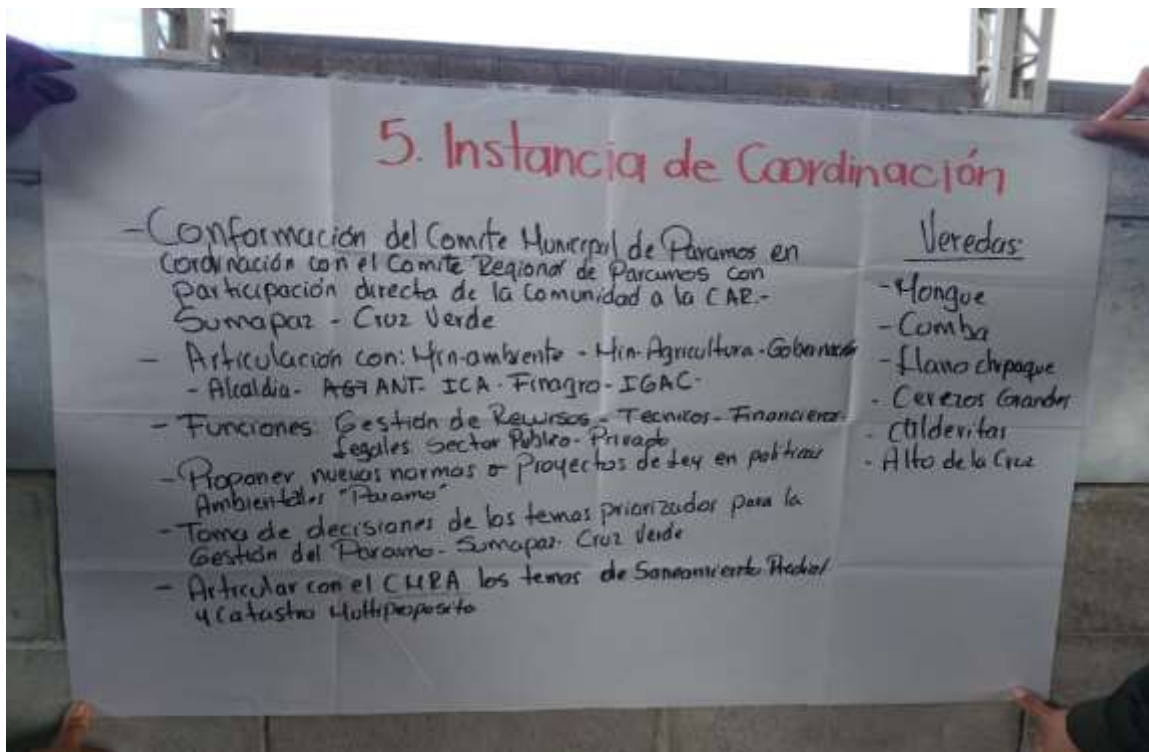 5. Instancia de Coordinación
- Conformación del Comite Municipal de Paramos en
Cordinación con el Comite Regional de Paramos con
participación directa de la Comunidad a la CAR.-
Sumapaz - Cruz Verde
- Articulación con: Min-ambiente - Min-Agricultura - Gobernación
- Alcaldia- ANT- ICA - Finagro - IGAC-
- Funciones: Gestión de Recursos - Tecnicos - Financieros-
Legales Sector Publico - Privado
- Proponer nuevas normas o Proyectos de Ley en politicas
Ambientales "Paramo"
- Toma de decisiones de los temas priorizados para la
Gestión del Paramo - Sumapaz - Cruz Verde
- Articular con el los temas de Saneamiento Predial
y Catastro Multiproposito
Veredas:
- Mongue
- Comba
- Llano chipaque
- Cerezos Grandes
- Calderitas
- Alto de la Cruz